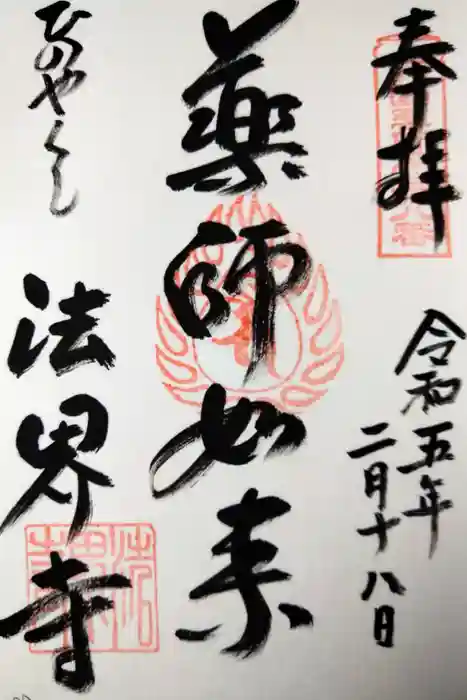 奉拝
令和五年
二月十八日
薬師如来
ひのやくし
法界寺